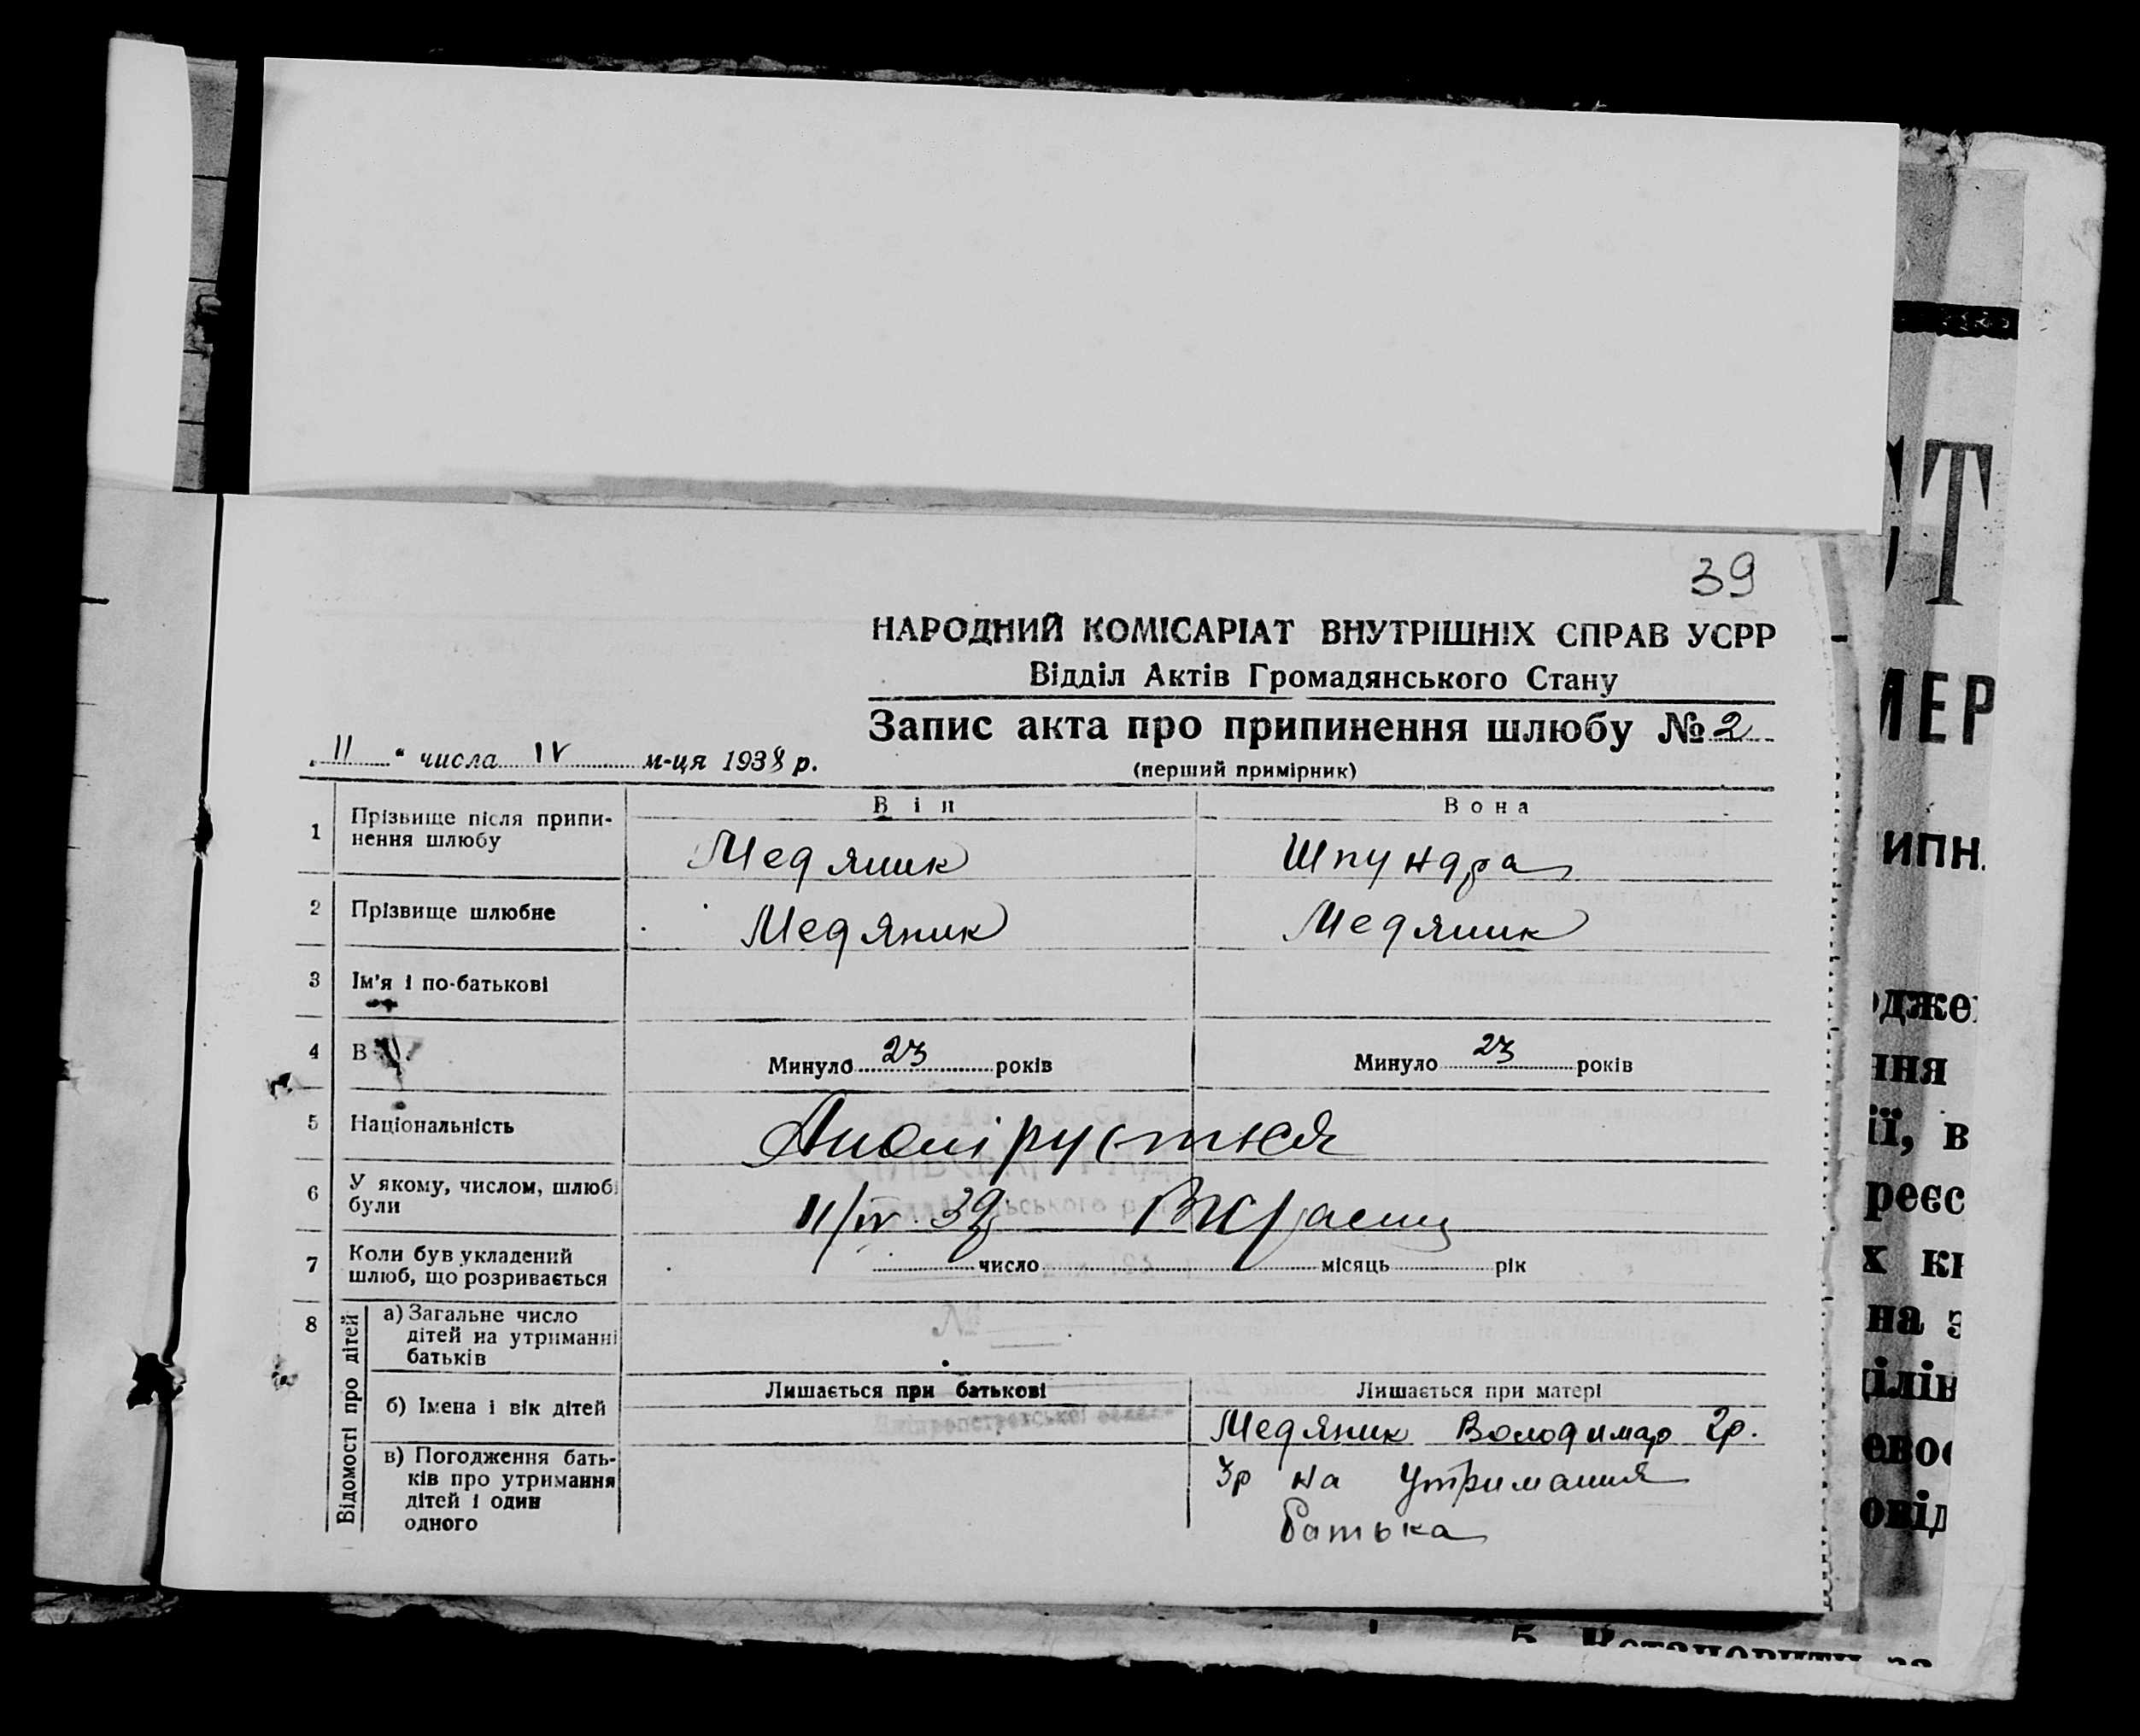 39
НАРОДНИЙ КОМІСАРІАТ ВНУТРІШНІХ СПРАВ УСРР
Відділ Актів Громадянського Стану
Запис акта про припинення шлюбу № 2
„ 11 “ числа IV м-ця 1938 р.
(перший примірник)
Він Вона
1 Прізвище після припи-
нення шлюбу Медяник Шпундра
2 Прізвище шлюбне Медяник Медяник
3 Ім'я і по-батькові
4 В
Минуло 23 років Минуло 23 років
5 Національність
6 У якому, числом, шлюбі
були 11/IV 38
7 Коли був укладений
шлюб, що розривається число місяць рік
8 Відомості про дітей
а) Загальне число
дітей на утриманні
батьків
Лишається при батькові Лишається при матері
б) Імена і вік дітей Медяник Володимар 2р.
в) Погодження бать-
ків про утримання
дітей і один
одного
на утримання
батька
СТ
МЕР
ипн.
дже
ння
ії, в
реєс
х кн
на з
ілів
евос
овід
5. Установити